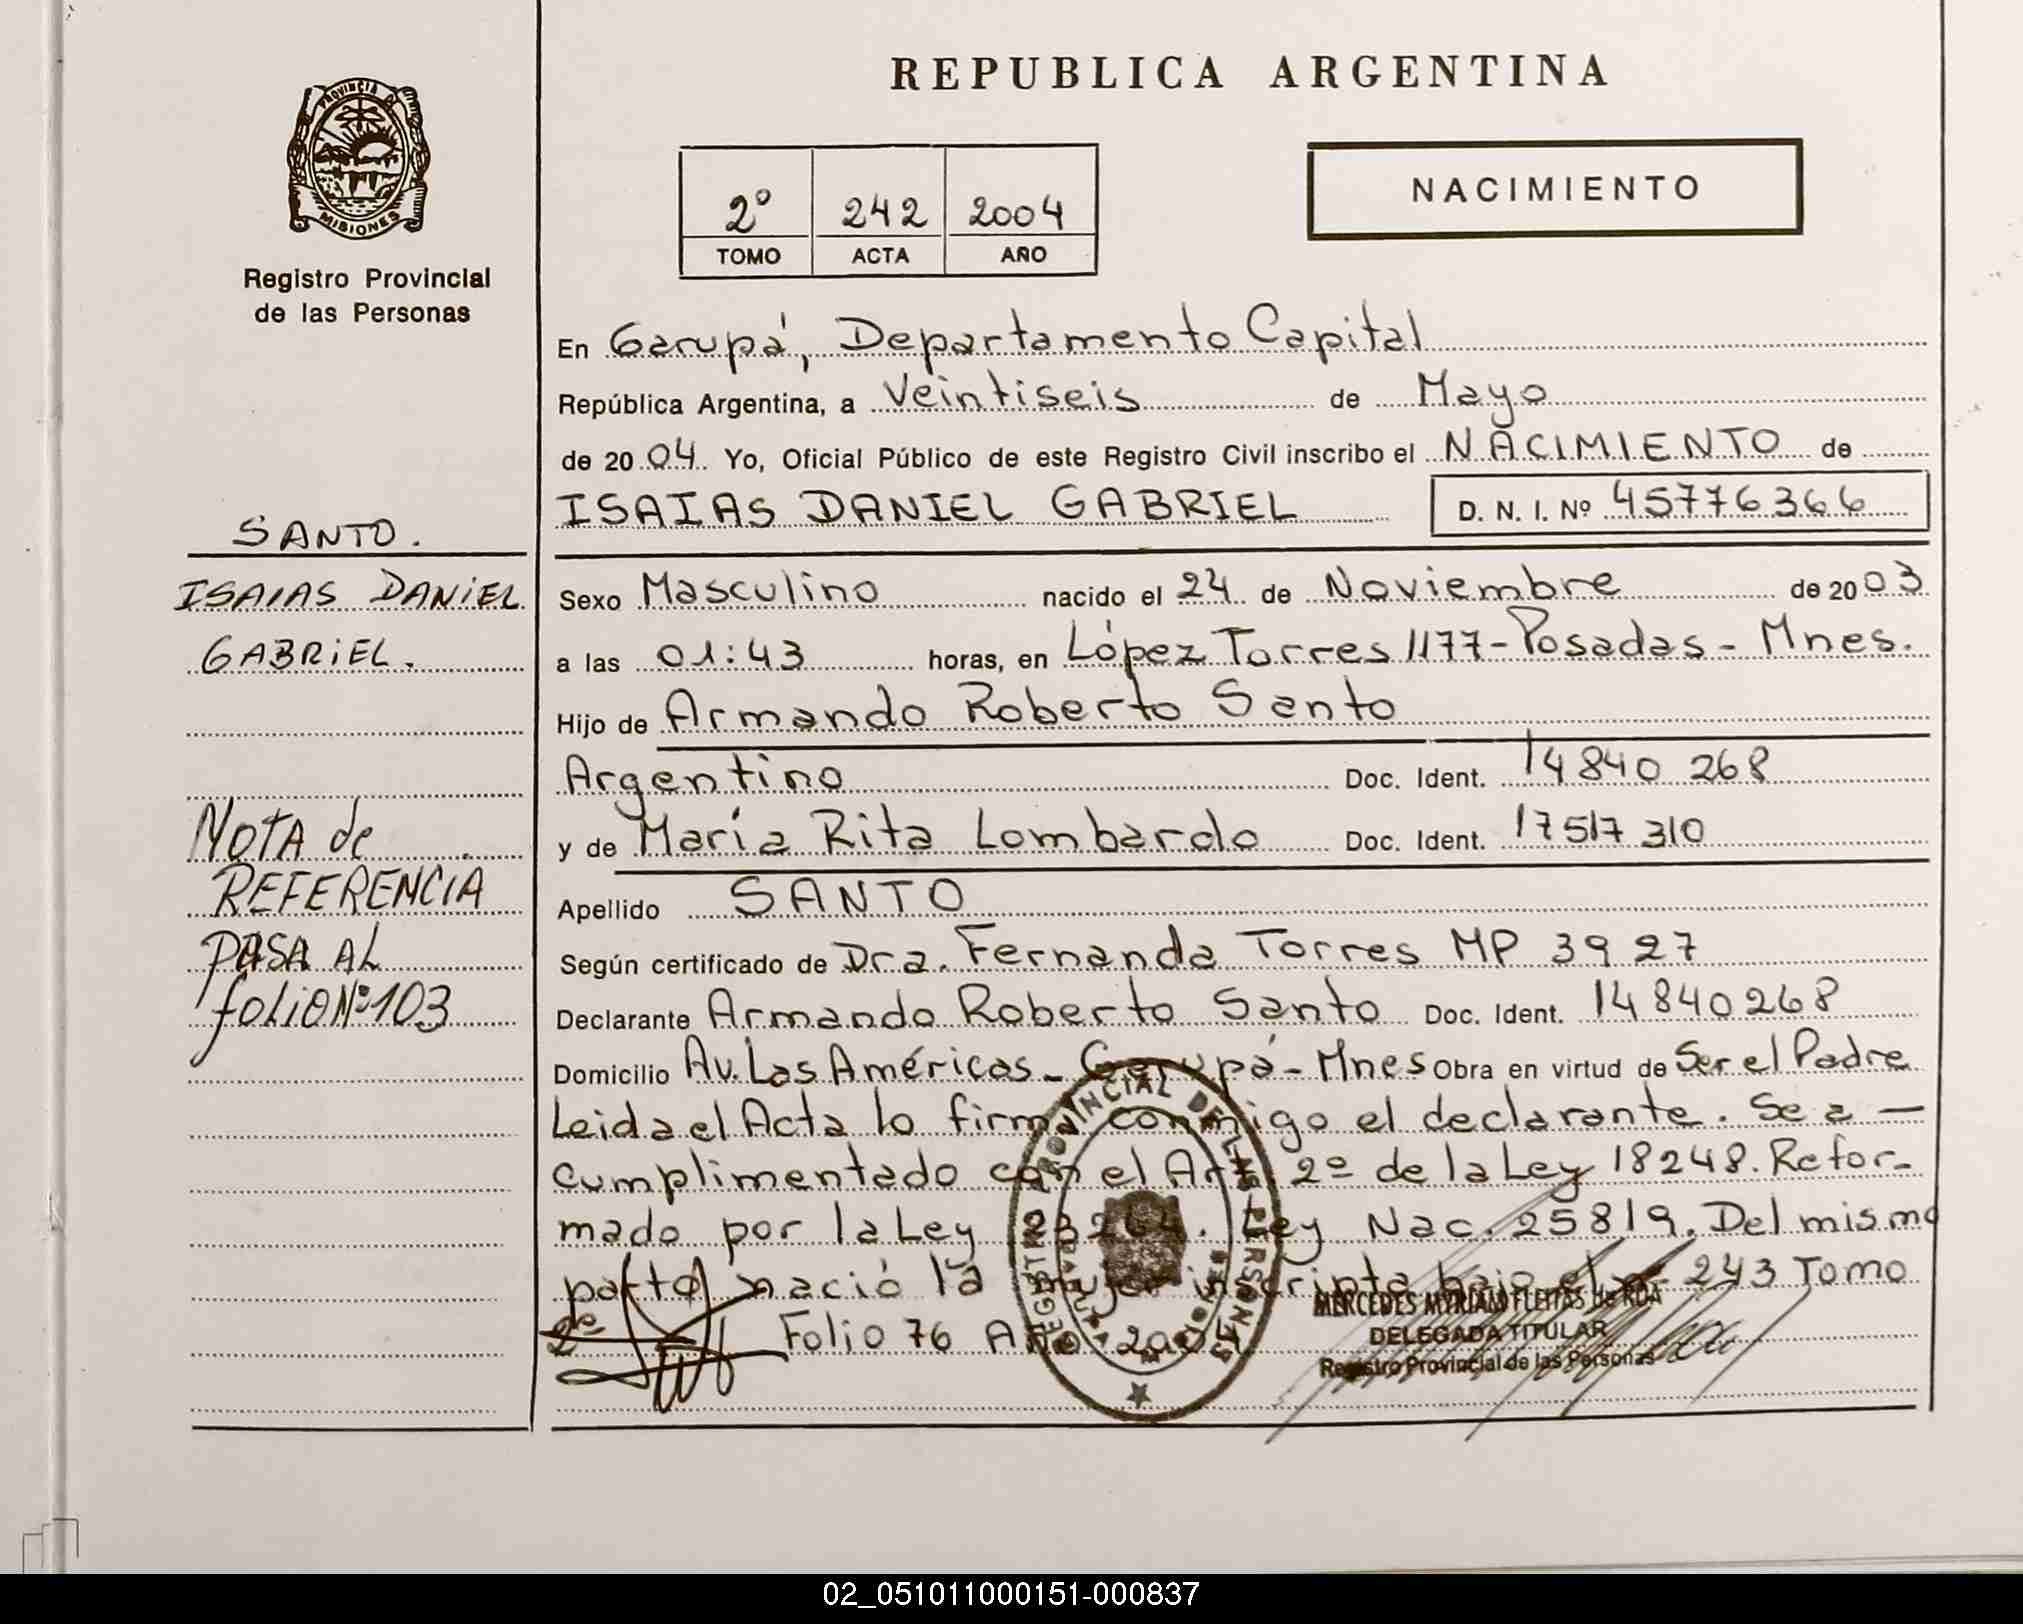 REPUBLICA ARGENTINA
PROVINCIA D
MISIONES
Registro Provincial
de las Personas
2º 242 2004
TOMO ACTA AÑO
NACIMIENTO
En Garupá, Departamento Capital
República Argentina, a Veintiseis de Mayo
de 2004 Yo, Oficial Público de este Registro Civil inscribo el NACIMIENTO de
ISAIAS DANIEL GABRIEL D. N. I. Nº 45776366
SANTO.
ISAIAS DANIEL
GABRIEL.
Sexo Masculino nacido el 24 de Noviembre de 2003
a las 01:43 horas, en López Torres 1177-Posadas-Mnes.
Hijo de Armando Roberto Santo
Argentino Doc. Ident. 14840 268
y de María Rita Lombardo Doc. Ident. 17517 310
NOTA de
REFERENCIA
PASA AL
folio Nº 103
Apellido SANTO
Según certificado de Dra. Fernanda Torres MP 3927
Declarante Armando Roberto Santo Doc. Ident. 14840268
Domicilio Av. Las Américas - Garupá - Mnes Obra en virtud de Ser el Padre
Leida el Acta lo firma conmigo el declarante. Se a —
cumplimentado con el Art. 2º de la Ley 18248. Refor-
mado por la Ley 23264. Ley Nac. 25819. Del mismo
parto nació la mujer inscripta bajo el nº 243 Tomo
2º Folio 76 Año 2004
REGISTRO PROVINCIAL DE LAS PERSONAS
MERCEDES MYRIAM FLEITAS de ROA
DELEGADA TITULAR
Registro Provincial de las Personas
02_051011000151-000837